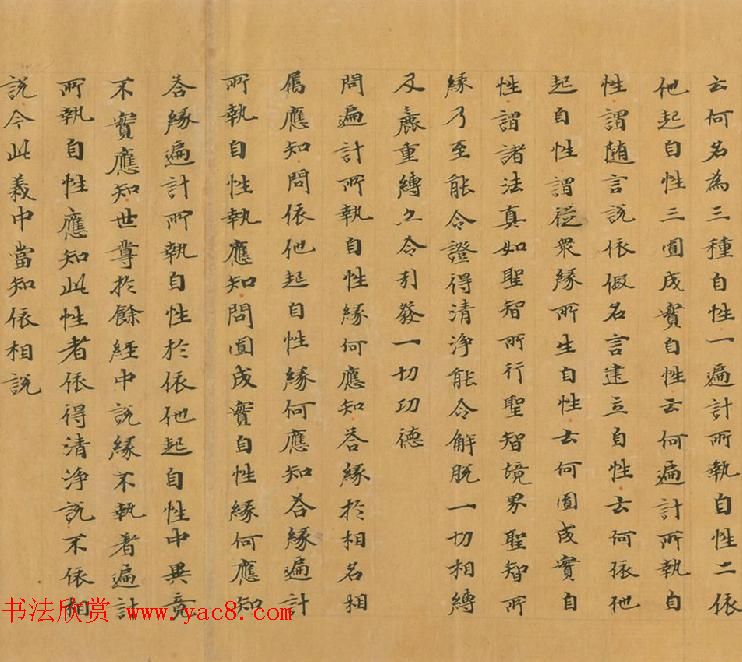 云何名為三種自性一遍計所執自性二依
他起自性三圓成實自性云何遍計所執自
性謂随言說依假名言建立自性云何依他
起自性謂從眾緣所生自性云何圓成實自
性謂諸法真如聖智所行聖智境界聖智所
緣乃至能令證得清淨能令解脫一切相縛
及麁重縛之令引發一切功德
問遍計所執自性緣何應知荅緣於相名相
属應知問依他起自性緣何應知荅緣遍計
所執自性執應知問圓成實自性緣何應知
荅緣遍計所執自性於依他起自性中畢竟
不實應知世尊於餘經中說緣不執著遍計
所執自性應知此性者依得清淨說不依相
說今此義中當知依相說
书法欣赏 www.yac8.com